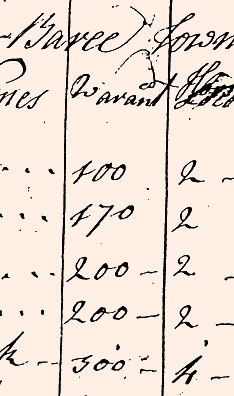 Baree Town
mes Warant
100 2 -
170 2
200 - 2 -
200 - 2 -
k -- 300 - 4 -